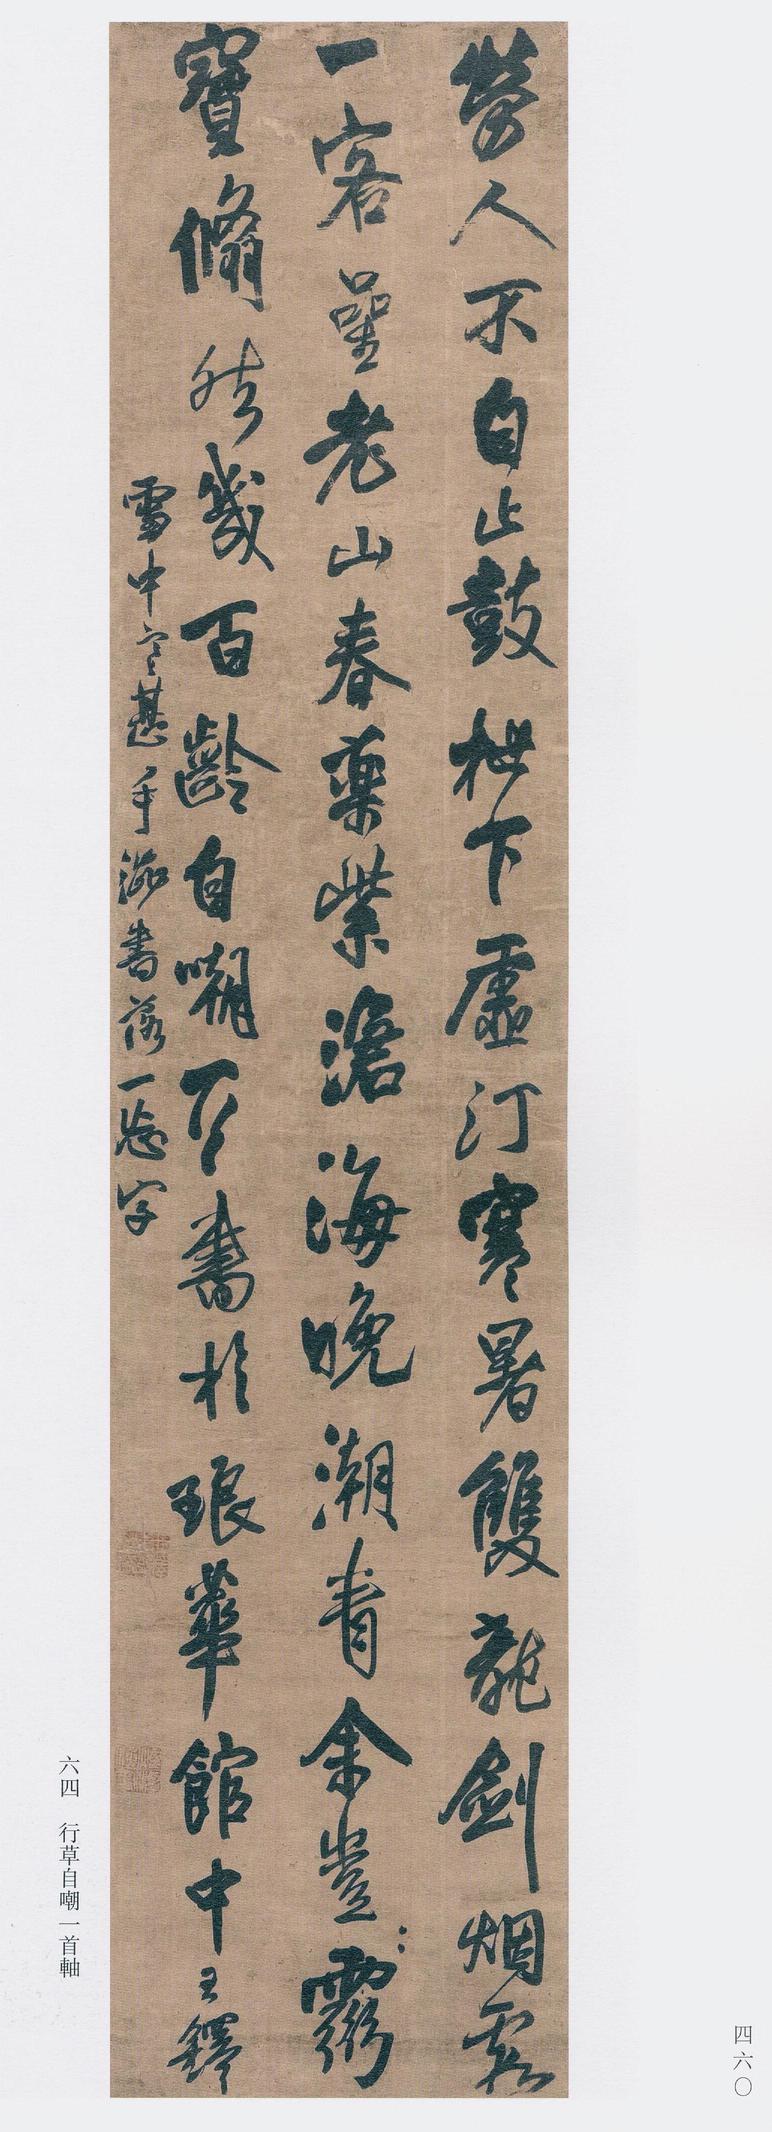 勞人不自止鼓枻下虛汀寒暑雙龍劍烟霞
一客星老山春藥紫澹海晚潮青余豈靈
寶翛然幾百齡自嘲書於琅華館中王鐸
雪中寒甚手澀書落一忘字
六四 行草自嘲一首軸
四六〇